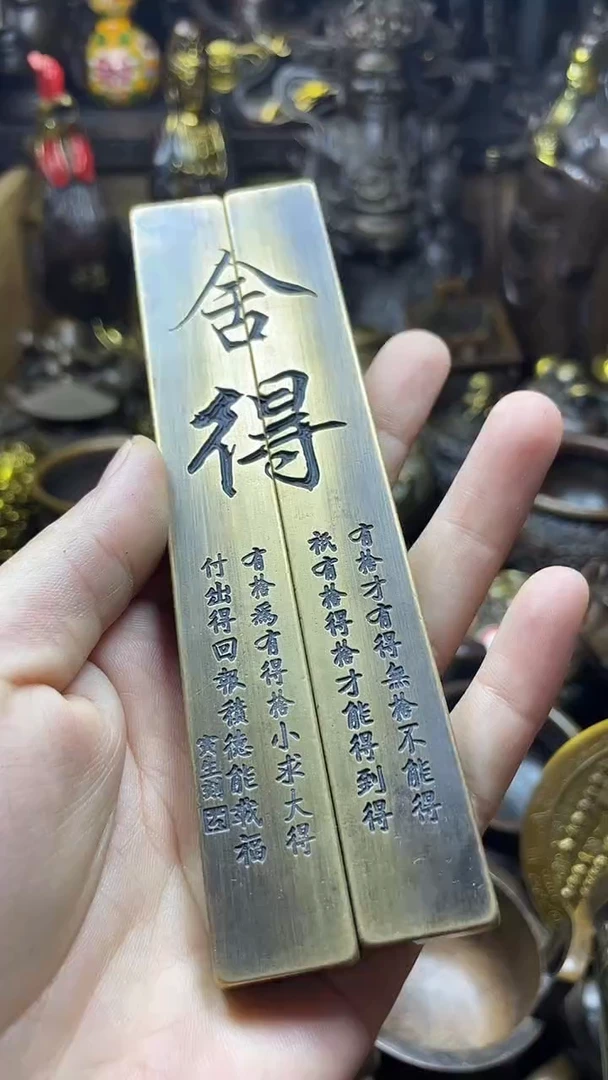 舍
得
有捨才有得無捨不能得
衹有捨得捨才能得到得
有捨為有得捨小求大得
付出得回報積德能載福